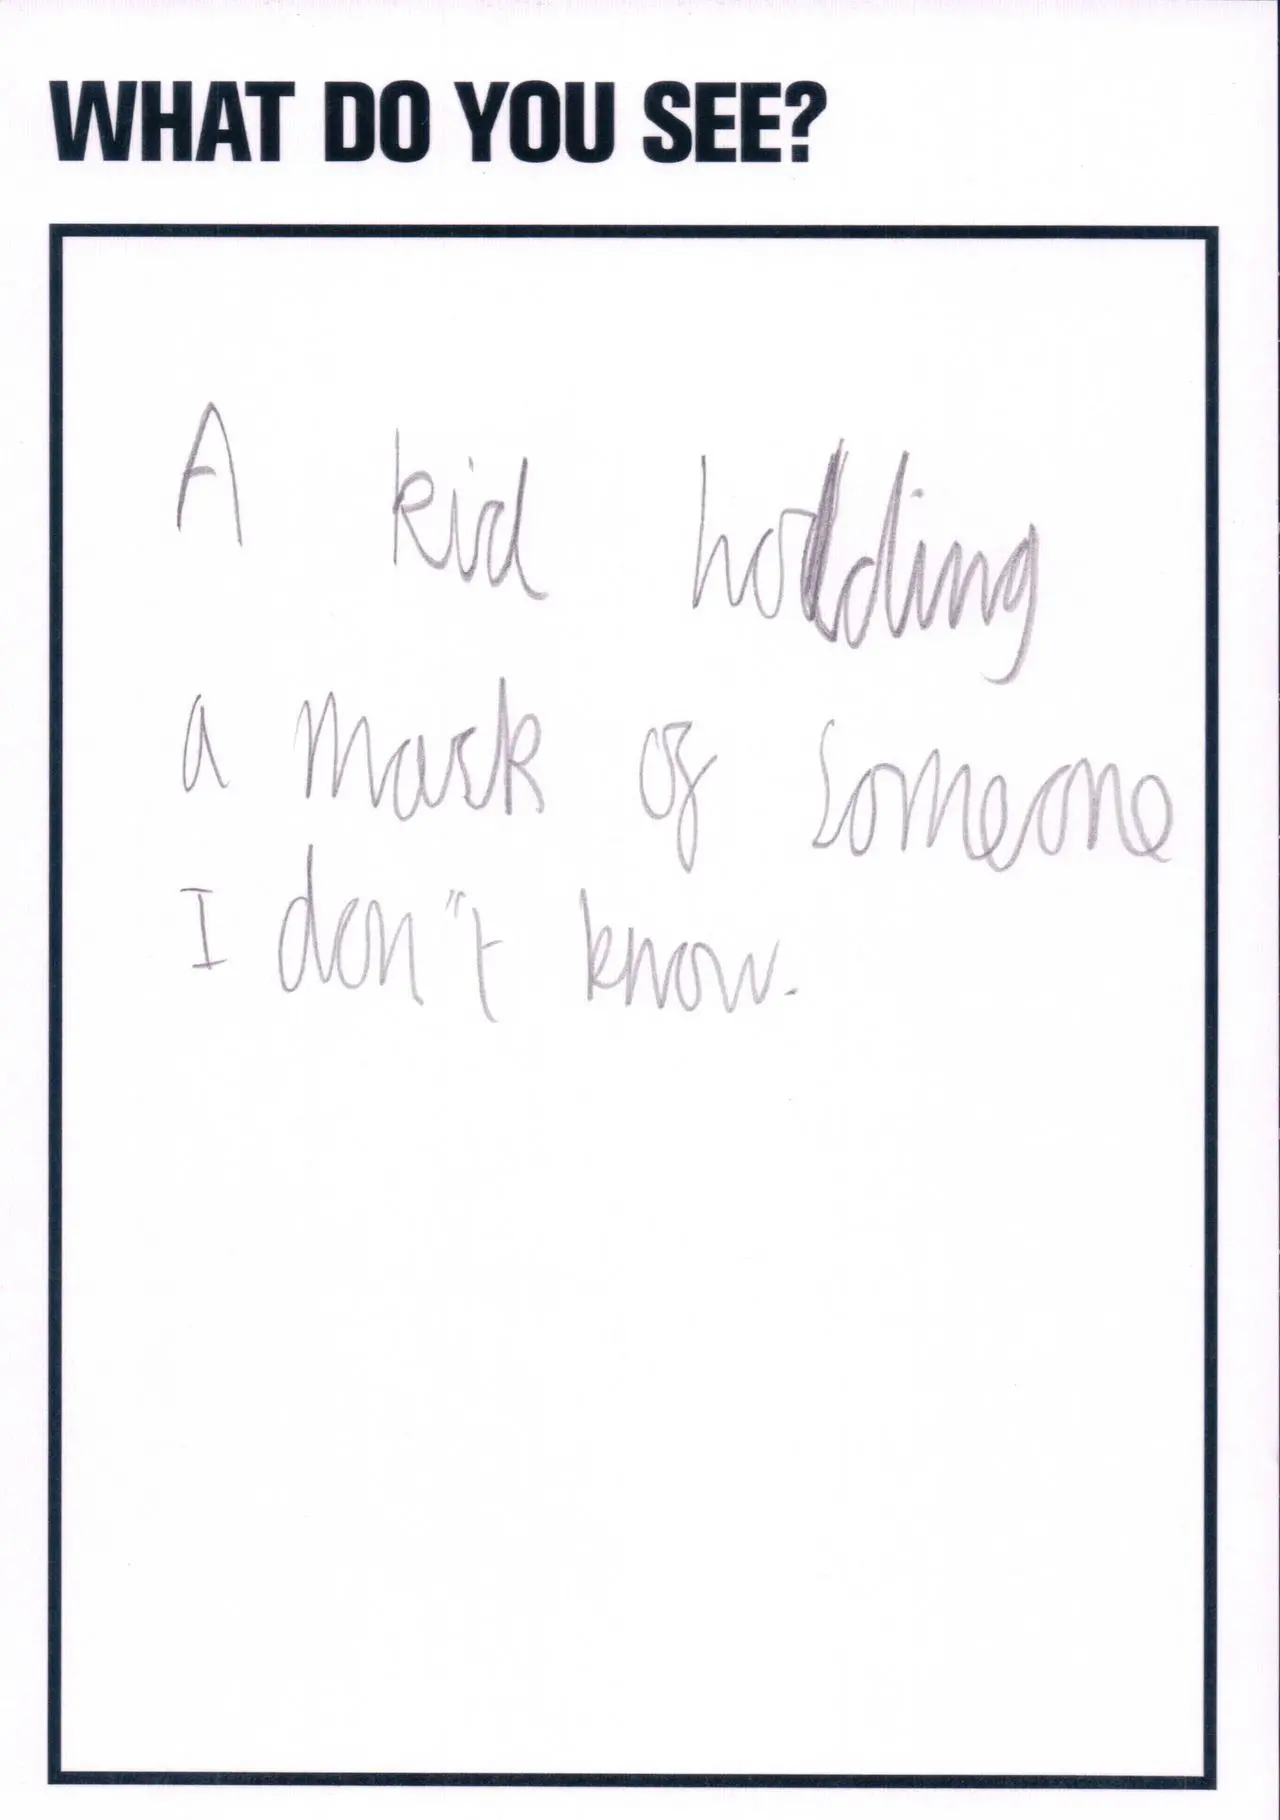 WHAT DO YOU SEE?
A kid holding
a mask of someone
I don"t know.